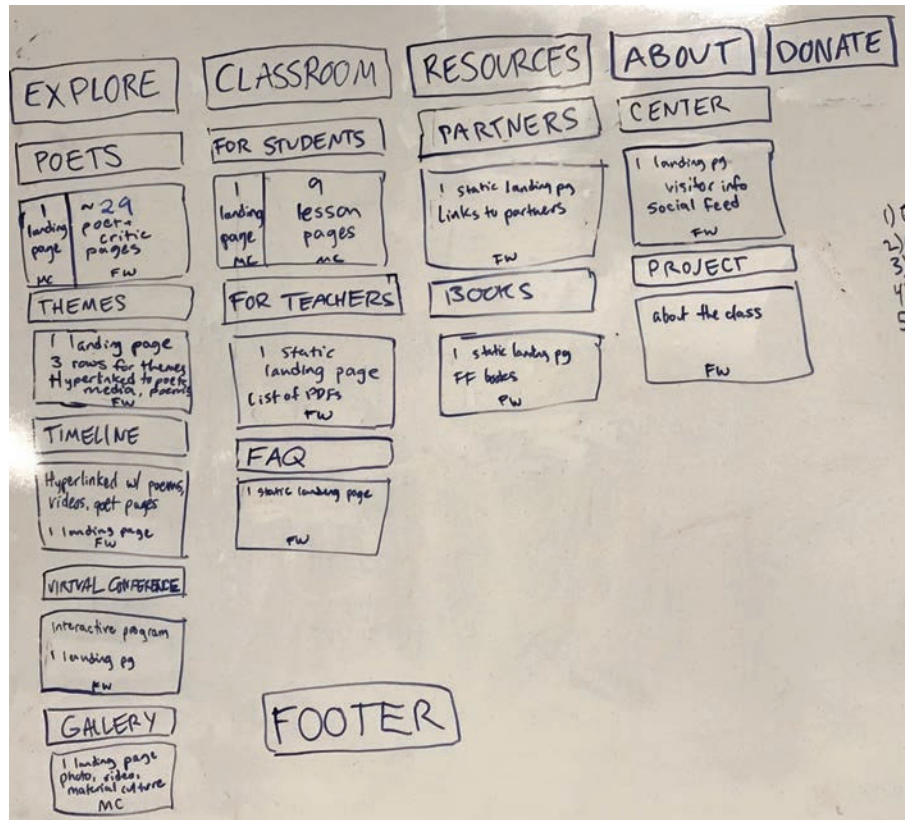 EXPLORE
POETS
1
landing
page
MC
~29
poet+
critic
pages
FW
THEMES
1 landing page
3 rows for themes
Hyperlinked to poets,
media, poems
FW
TIMELINE
Hyperlinked w/ poems,
videos, poet pages
1 landing page
FW
VIRTUAL CONFERENCE
Interactive program
1 landing pg
FW
GALLERY
1 landing page
photo, video,
material culture
MC
CLASSROOM
FOR STUDENTS
1
landing
page
MC
9
lesson
pages
MC
FOR TEACHERS
1 static
landing page
List of PDFs
FW
FAQ
1 static landing page
FW
FOOTER
RESOURCES
PARTNERS
1 static landing pg
Links to partners
FW
BOOKS
1 static landing pg
FF books
FW
ABOUT
CENTER
1 landing pg
visitor info
social feed
FW
PROJECT
about the class
FW
DONATE
1)
2)
3)
4
5